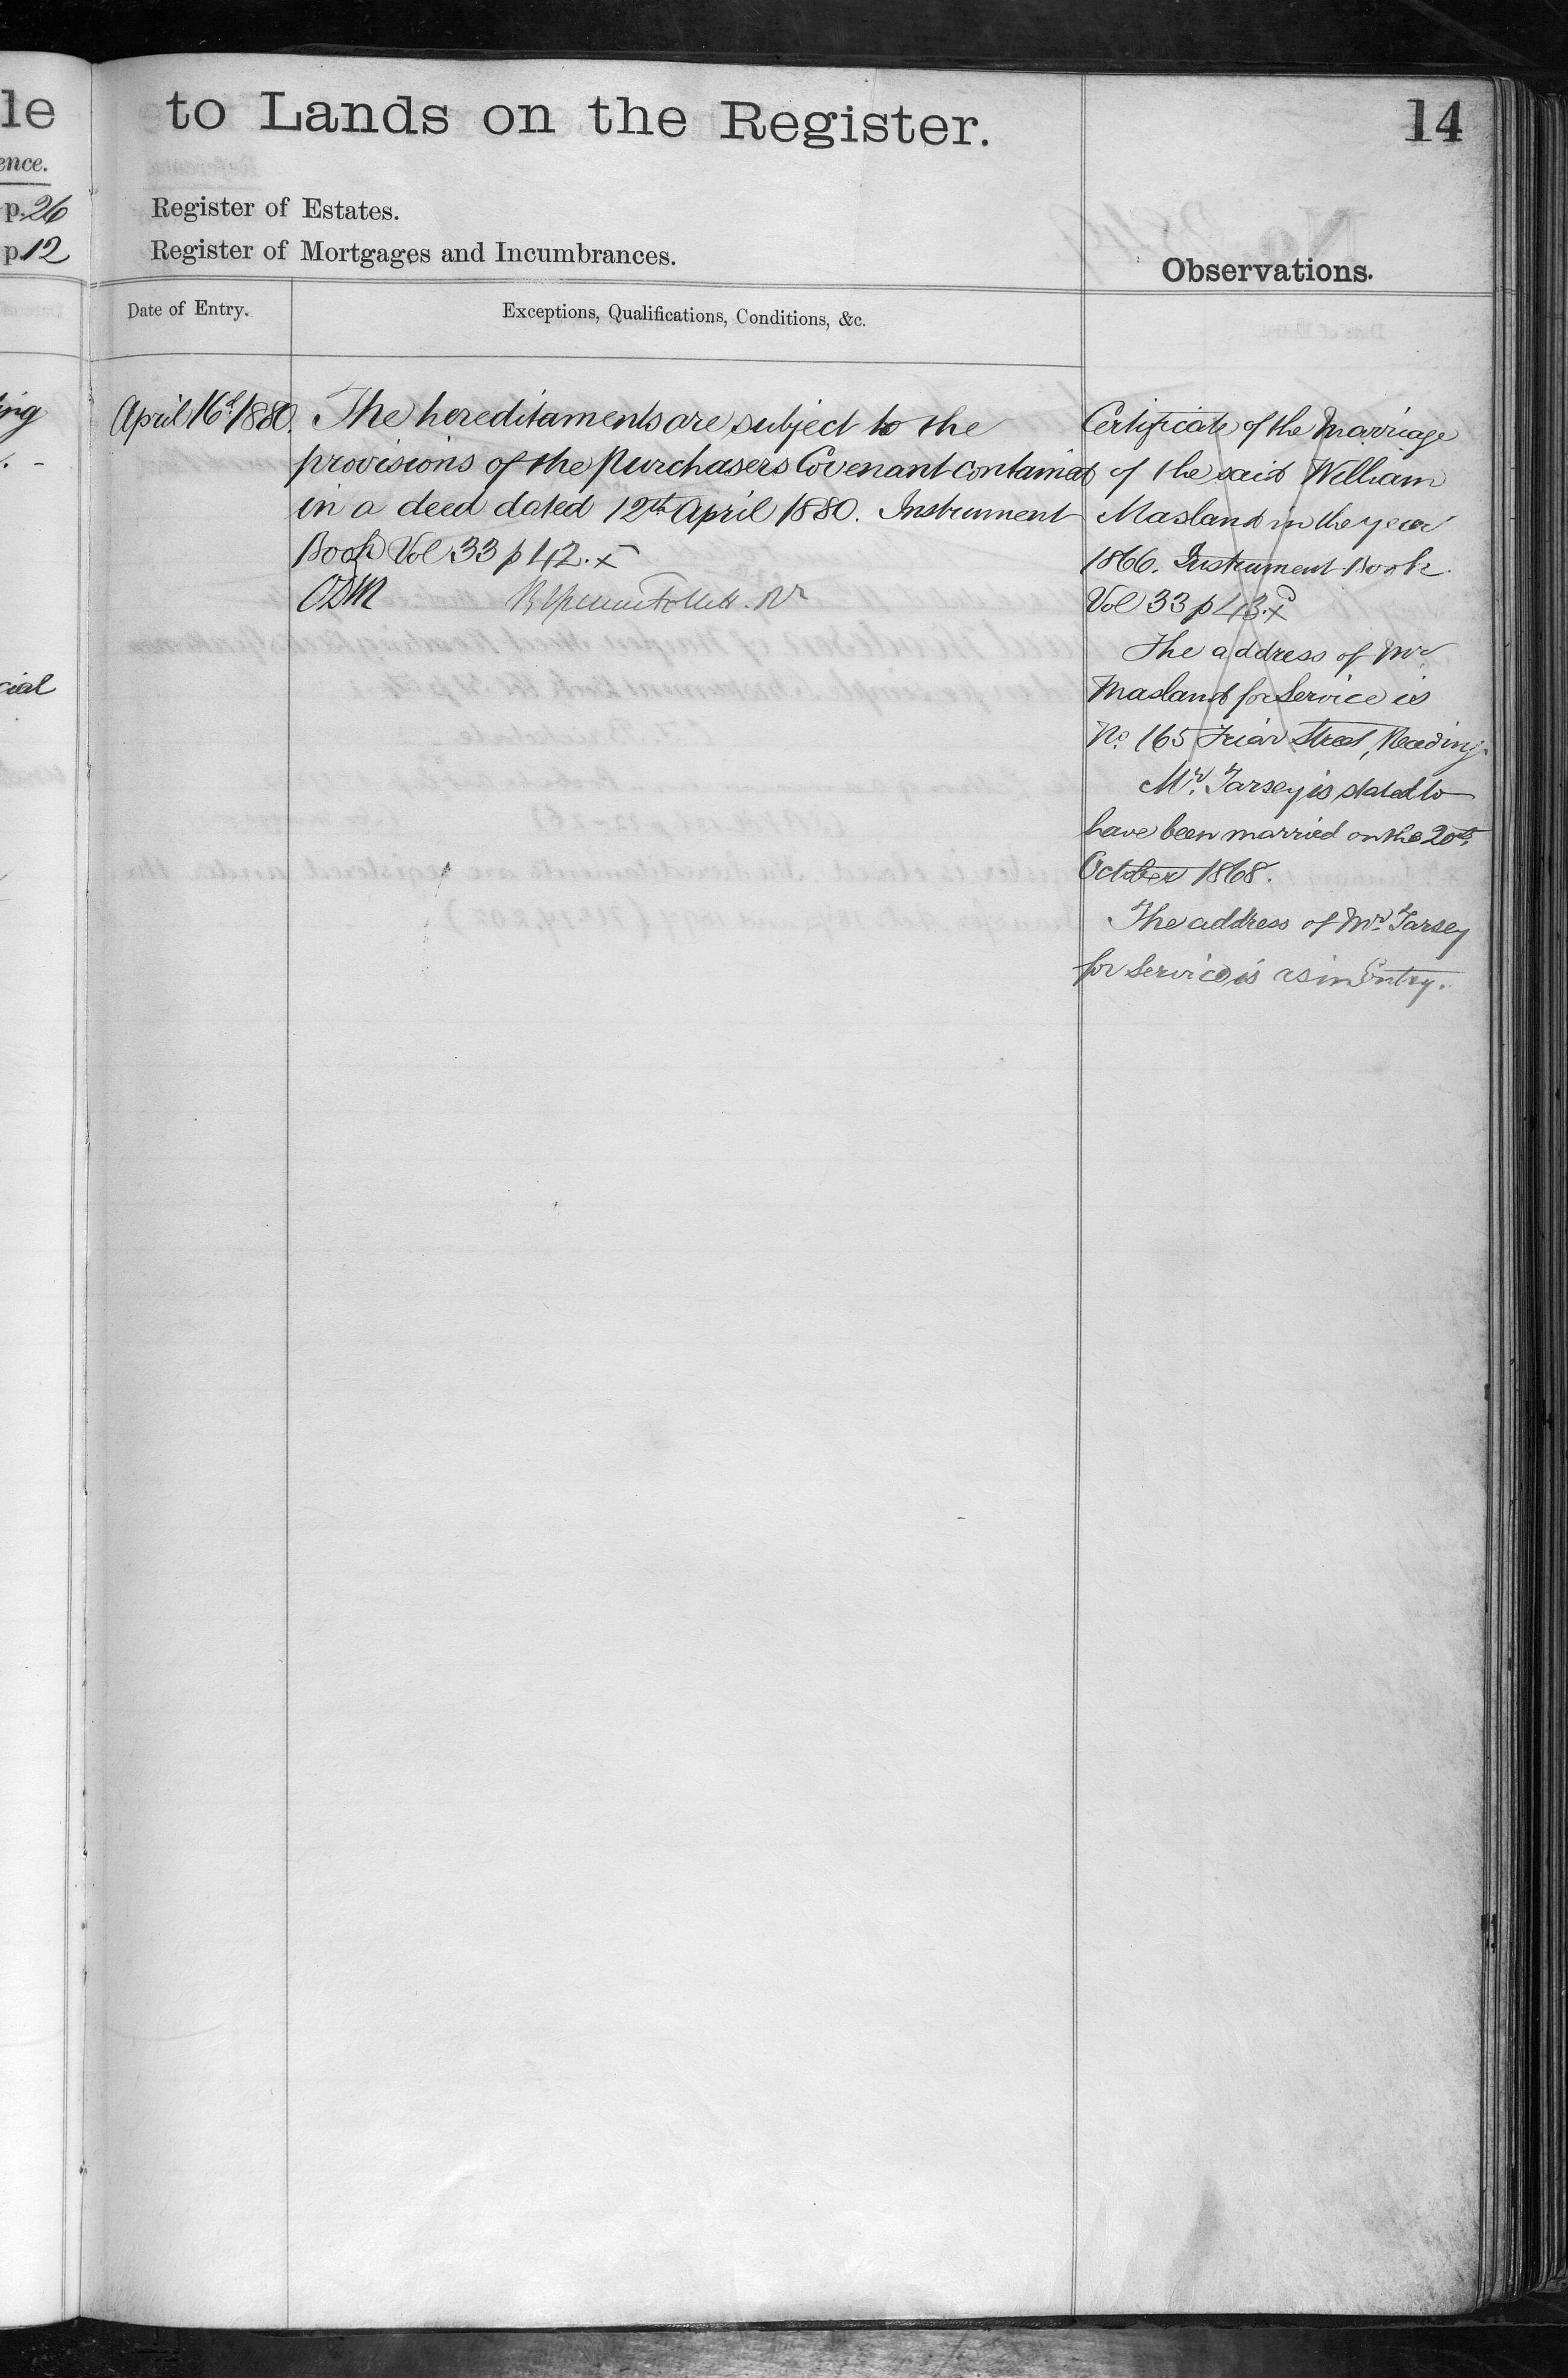 le
ence.
p. 26
p. 12
ing
cial
to Lands on the Register.
14
Register of Estates.
Register of Mortgages and Incumbrances.
Observations.
Date of Entry.
Exceptions, Qualifications, Conditions, &c.
April 16th 1880.
The hereditaments are subject to the
provisions of the purchasers Covenant contained
in a deed dated 12th April 1880. Instrument
Book Vol 33 p 42. x
Certificate of the Marriage
of the said William
Masland in the year
1866. Instrument Book
Vol 33 p 43. x
The address of Mr
Masland for Service is
No. 165 Friar Street, Reading.
Mr. Tarsey is stated to
have been married on the 20th
October 1868.
The address of Mr. Tarsey
for Service is as in Entry.